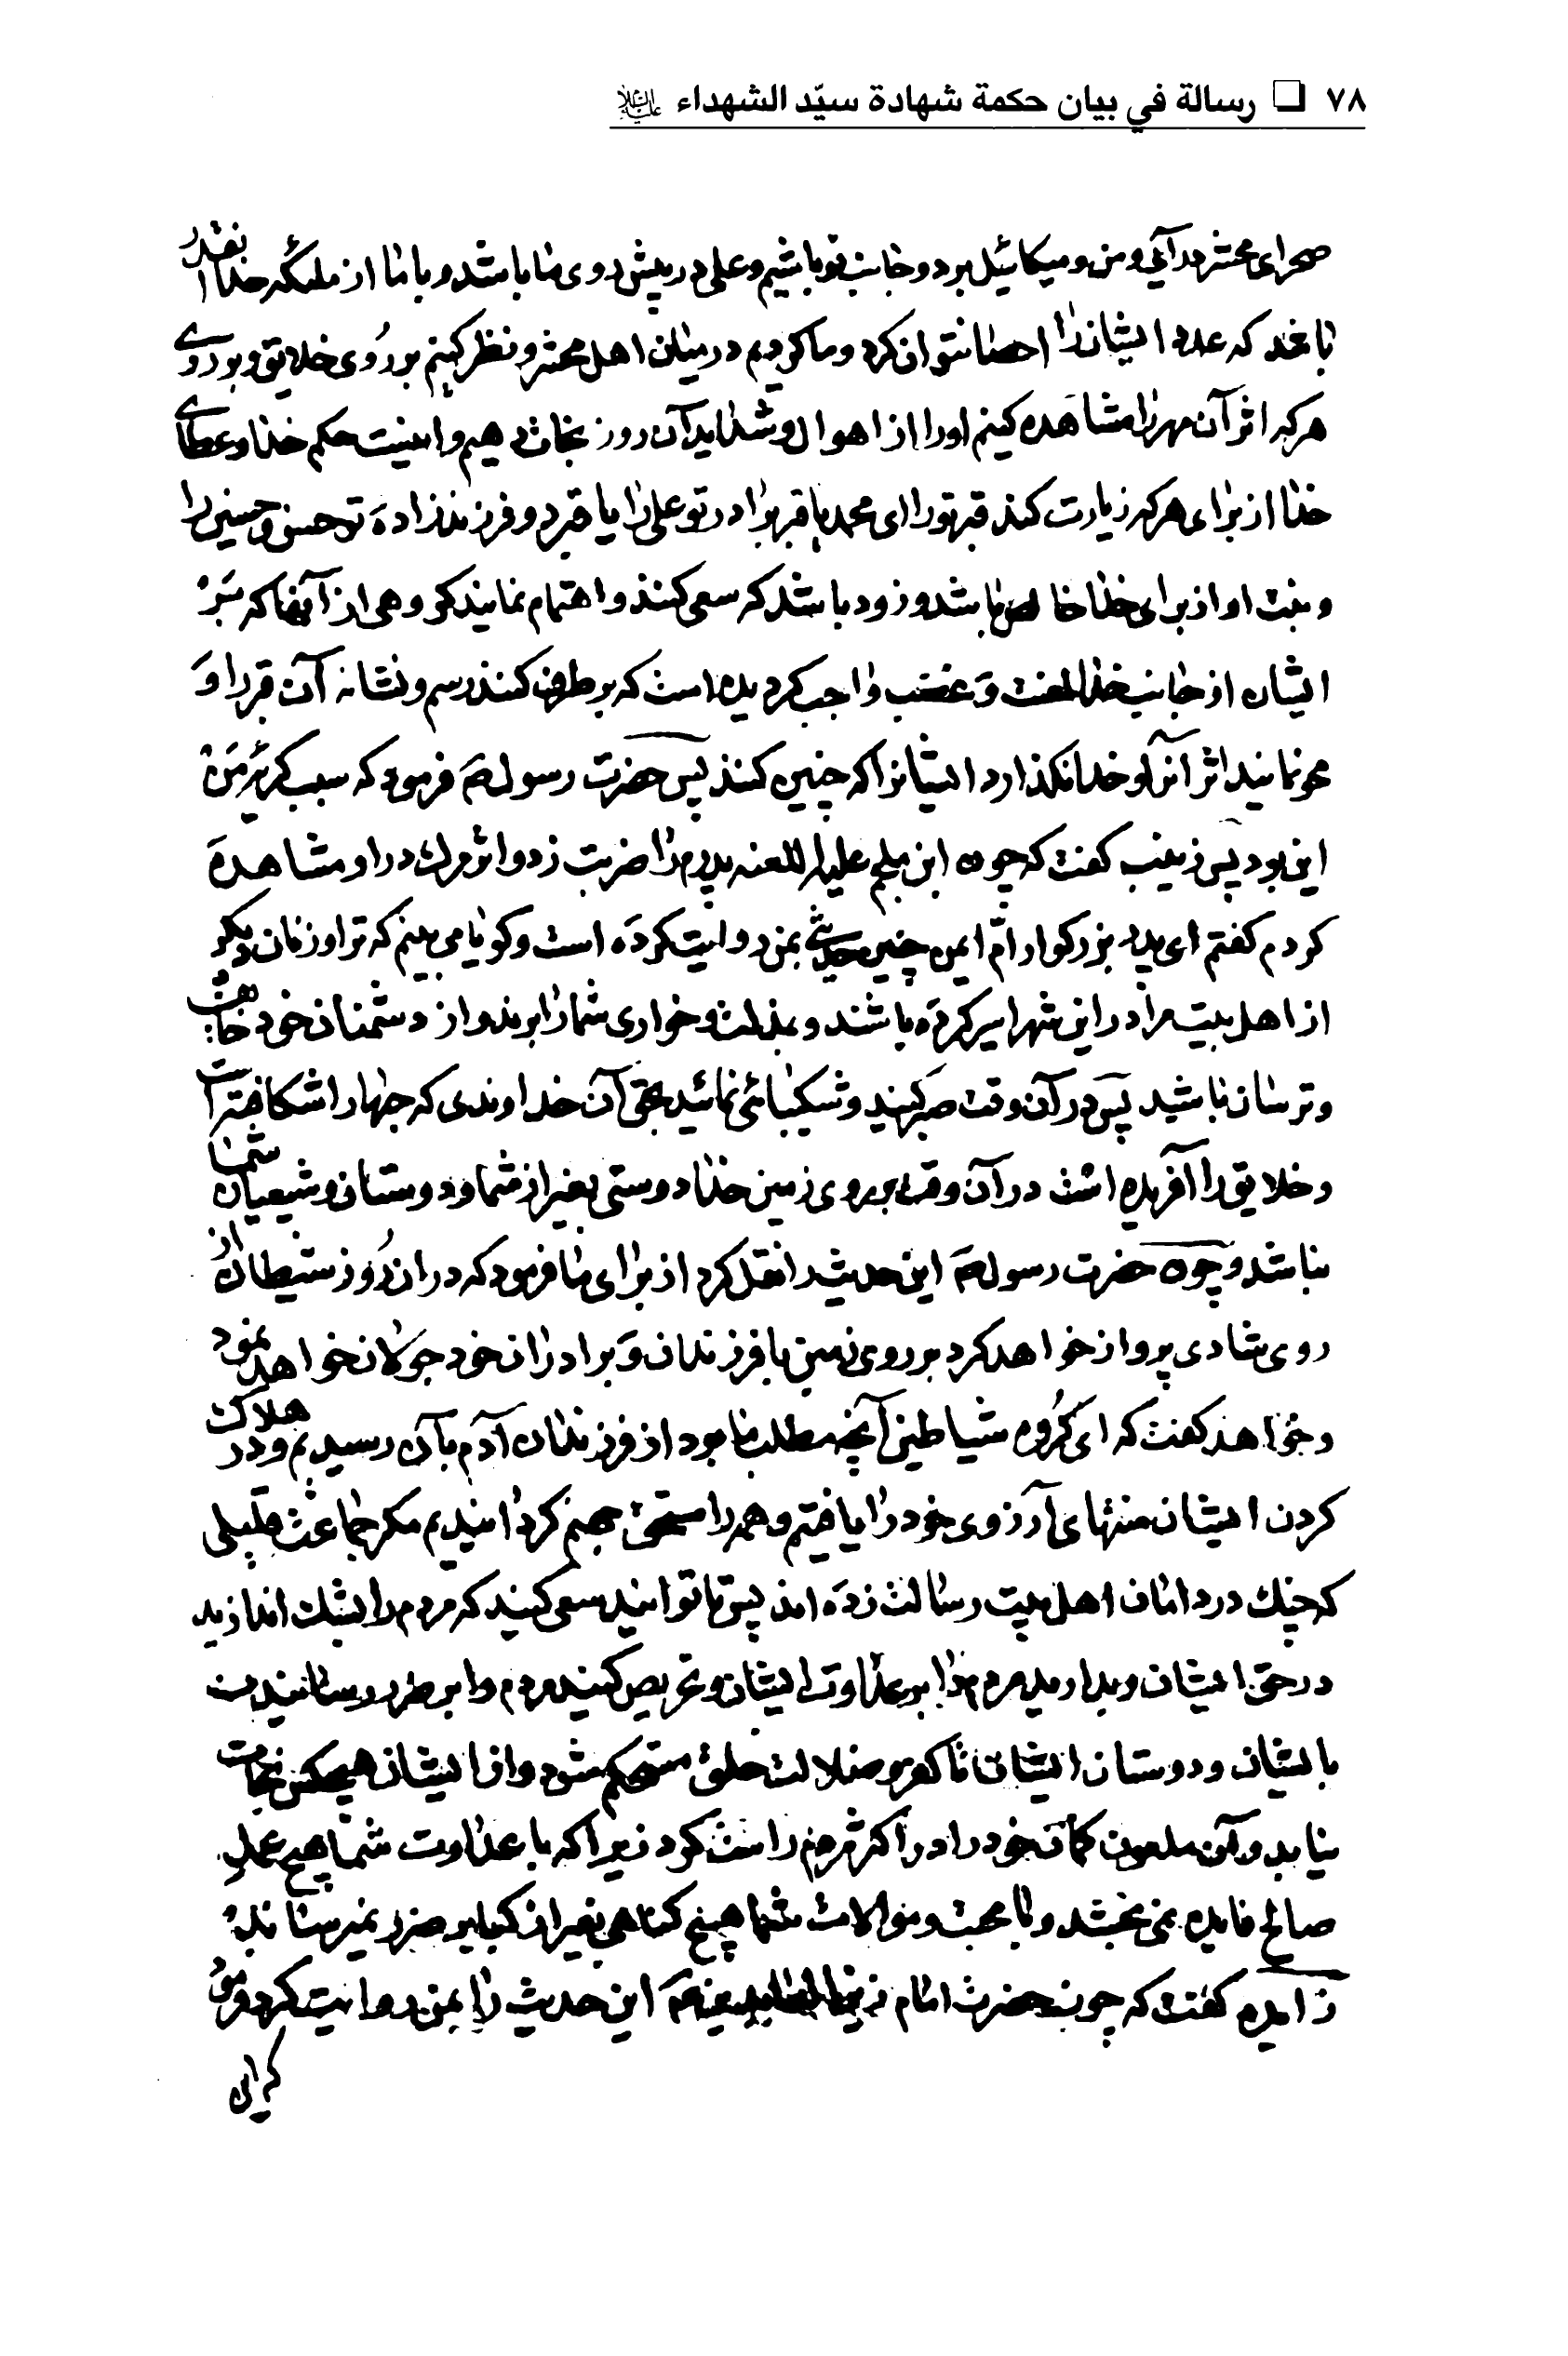 ٧٨ ❏ رسالة في بيان حكمة شهادة سيّد الشهداء عليه السلام
صحرای محشر درآئی و من و میکائیل بر دو جانب تو باشیم و علی در پیش روی ما باشد و با ما از ملئکه خدا آنقدر
باشند که عدد ایشان را احصا نتوان کرد و ما گردیم در میان اهل محشر و نظر کنیم بر روی خلایق و بر روی
هر که اثر آن مهر را مشاهده کنیم او را از اهوال و شداید آن روز نجات دهیم و اینست حکم خدا و عطای
خدا از برای هر که زیارت کند قبر تو را ای محمد یا قبر برادر تو علی را یا قبر دو فرزند زاده تو حسن و حسین را
و نیت او از برای خدا خالص باشد و زود باشد که سعی کنند و اهتمام نمایند گروهی از آنها که بر
ایشان از جانب خدا لعنت و غضب واجب گردیده است که برطرف کنند رسم و نشانه آن قبر را و
محو نمایند اثر آنرا و خدا نگذارد ایشانرا که چنین کنند پس حضرت رسول ص فرمود که سبب گریه من
این بود پس زینب گفت که چون ابن ملجم علیه اللعنه پدرم را ضربت زد و اثر مرگ در او مشاهده
کردم گفتم ای پدر بزرگوار امّ ایمن چنین حدیثی بمن روایت کرده است و گویا می بینم که ترا و زنان دیگر
از اهل بیت مرا در این شهر اسیر کرده باشند و بذلت و خواری شما را برند و از دشمنان خود خائف
و ترسان باشید پس در آن وقت صبر کنید و شکیبائی نمائید بحق آن خداوندی که حبّها را شکافته است
و خلایق را آفریده است در آن وقت بر روی زمین خدا دوستی بغیر از شما و دوستان و شیعیان شما
نباشد و چون حضرت رسول ص این حدیث را نقل کرد از برای ما فرمود که در آن روز شیطان از
روی شادی پرواز خواهد کرد بر روی زمین با فرزندان و برادران خود جولان خواهد نمود
و خواهد گفت که ای گروه شیاطین آنچه مطلب ما بود از فرزندان آدم بآن رسیدیم و در هلاک
کردن ایشان منتهای آرزوی خود را یافتیم و همه را مستحق جهنم گردانیدیم مگر جماعت قلیلی
که چنگ در دامان اهل بیت رسالت زده اند پس تا توانید سعی کنید که مردم را بشک اندازید
در حق ایشان و بدارید مردم را بر عداوت ایشان و تحریص کنید مردم را بر ضرر رسانیدن
بایشان و دوستان ایشان تا کفر و ضلالت خلق مستحکم شود و از ایشان هیچکس نجات
نیابد و آن ملعون گمان خود را در اکثر مردم راست کرد زیرا که با عداوت شما هیچ عمل
صالح فایده نمی بخشد و با محبت و موالات شما هیچ گناهی بغیر از کبایر ضرر نمیرساند
زایده گفت که چون حضرت امام زین العابدین ع این حدیث را بمن روایت کرد فرمود
که این